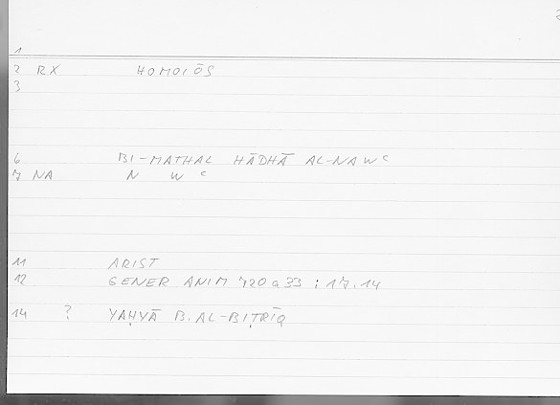 1
2 RX HOMOIŌS
3
6 BI-MATHAL HĀDHĀ AL-NAWᶜ
7 NA N W ᶜ
11 ARIST
12 GENER ANIM 720a33 ; 17.14
14 ? YAḤYĀ B. AL-BIṬRĪQ